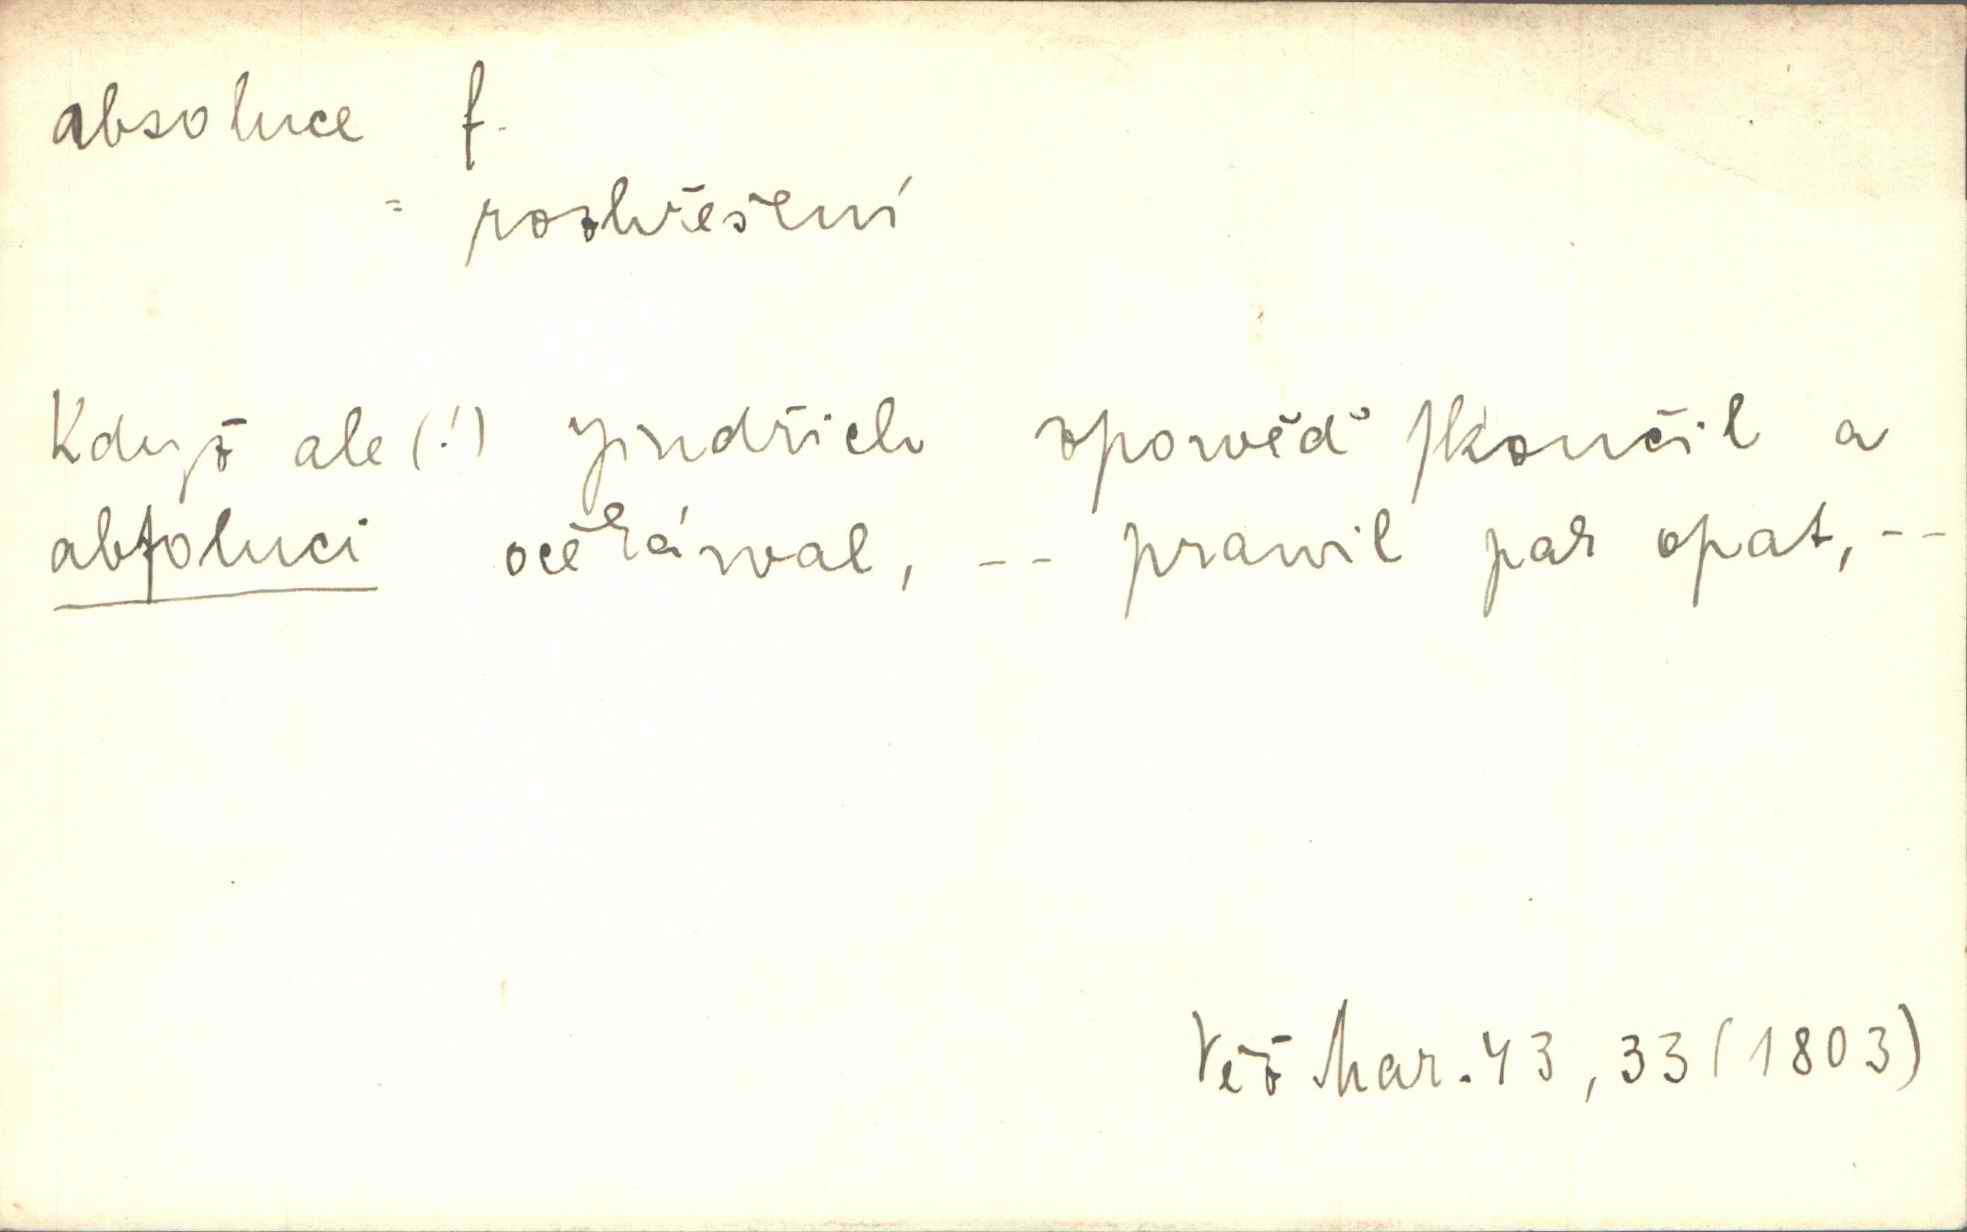 absoluce f.
= rozhřešení
Když ale (!) Jindřich zpowěď ſkončil a
abſoluci očekáwal, -- prawil pak opat, --
Věž Mar. 43, 33 (1803)